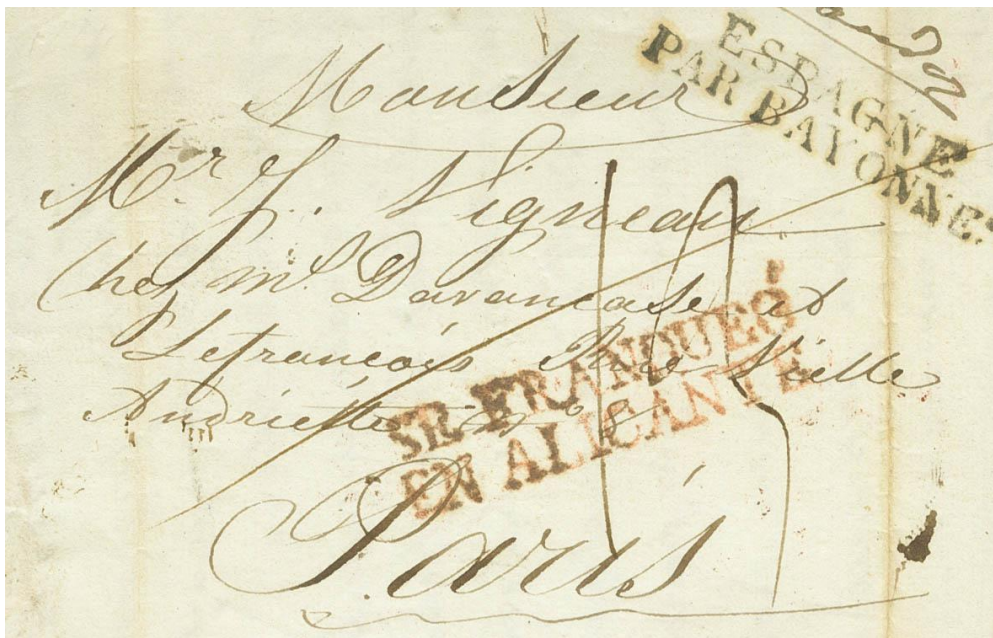 ESPAGNE
PAR BAYONNE.
Monsieur
Mr. J. Vigneau
Chez Mrs. Davancase et
Lefrançois Rue Vielle
Andriette n° 8
SE FRANQUEÓ
EN ALICANTE
Paris